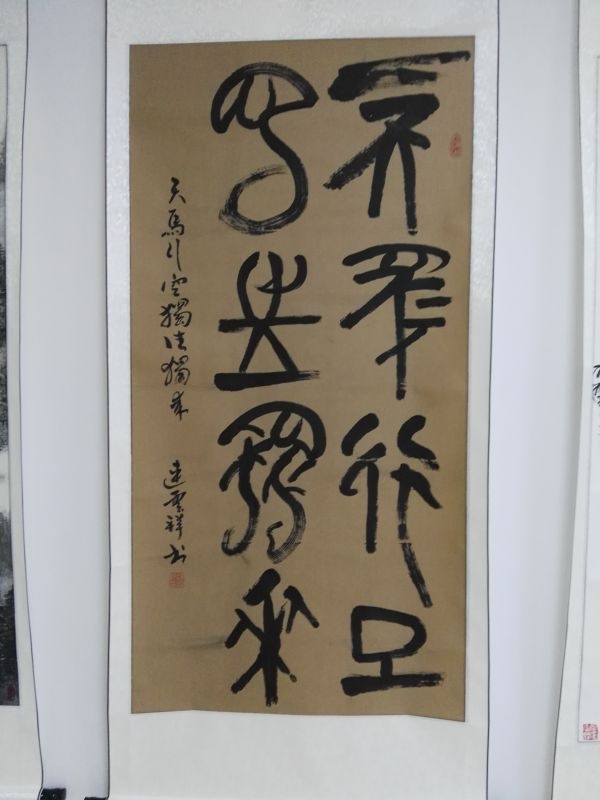 天馬行空
獨往獨來
天馬行空獨往獨來 連雲祥书